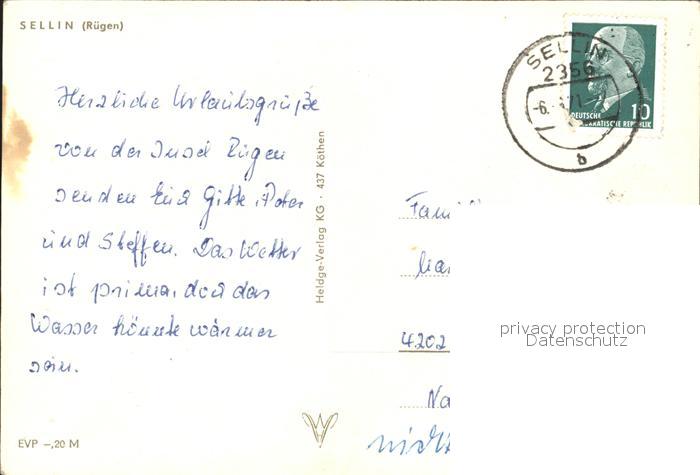 SELLIN (Rügen)
Herzliche Urlaubsgrüße
von der Insel Rügen
senden Euch Gitte, Peter
und Steffen. Das Wetter
ist prima, doch das
Wasser könnte wärmer
sein.
EVP -,20 M
Heldge-Verlag KG · 437 Köthen
SELLIN
2356
-6.
b
10
DEUTSCHE
KRATISCHE REPUBLIK
Fami
4202
Na
privacy protection
Datenschutz